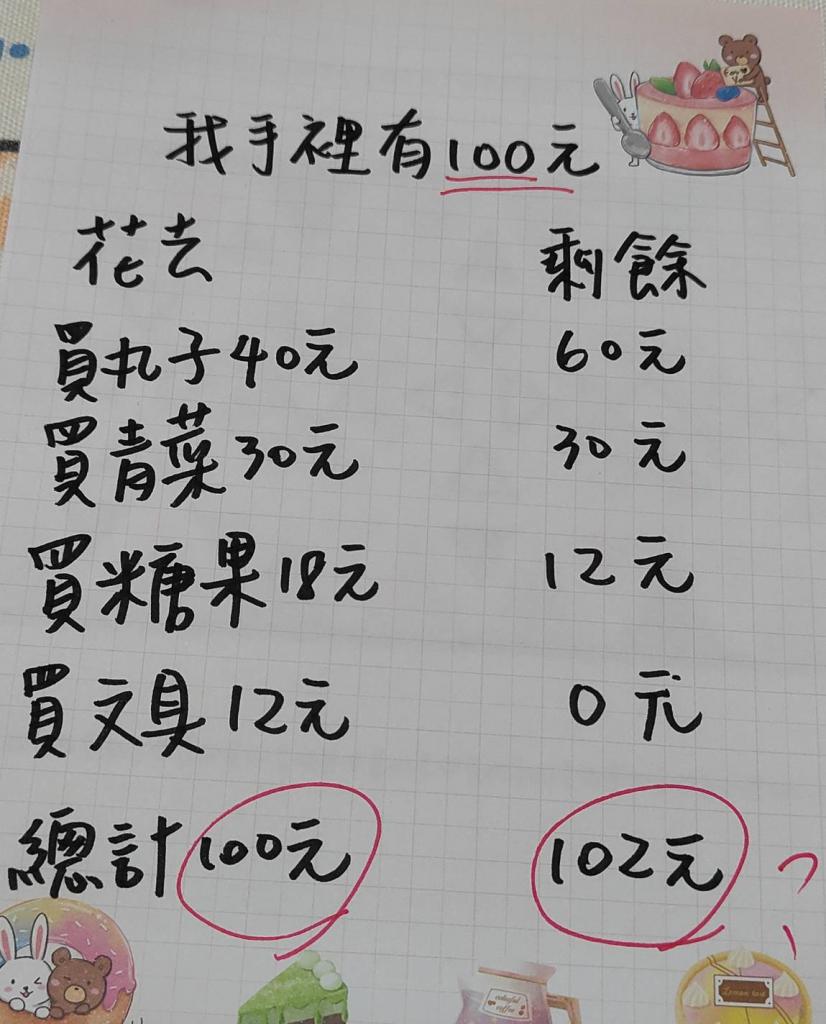 我手裡有100元
花去 剩餘
買丸子40元 60元
買青菜30元 30元
買糖果18元 12元
買文具12元 0元
總計100元 102元?
colorful
coffee